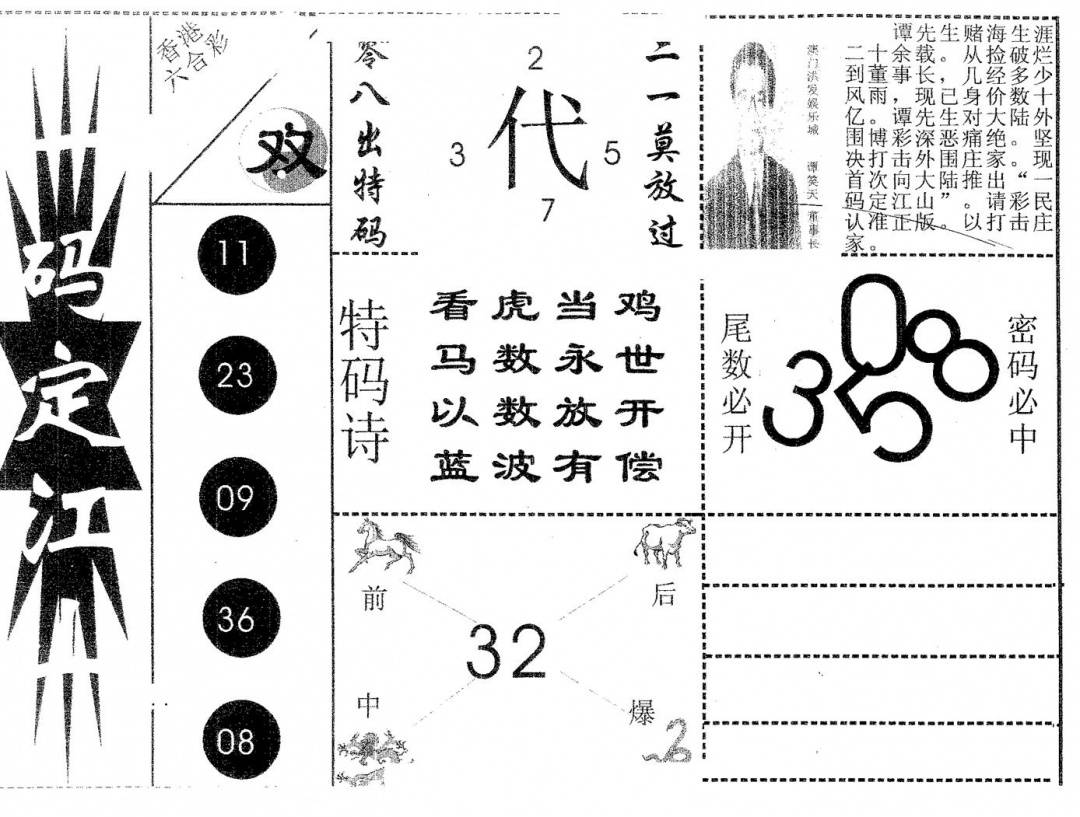 码定江山
香港
六合彩
双
11
23
09
36
08
零八出特码
2
代
3
5
7
二一莫放过
澳门洪发娱乐城 谭笑天 董事长
谭先生赌海生涯
二十余载。从捡破烂
到董事长，几经多少
风雨，现已身价数十
亿。谭先生对大陆外
围博彩深恶痛绝。坚
决打击外围庄家。现
首次向大陆推出“一
码定江山”。请彩民
认准正版。以打击庄
家。
特码诗
看虎当鸡
马数永世
以数放开
蓝波有偿
尾数必开
3
0
5
8
密码必中
前
后
32
中
爆